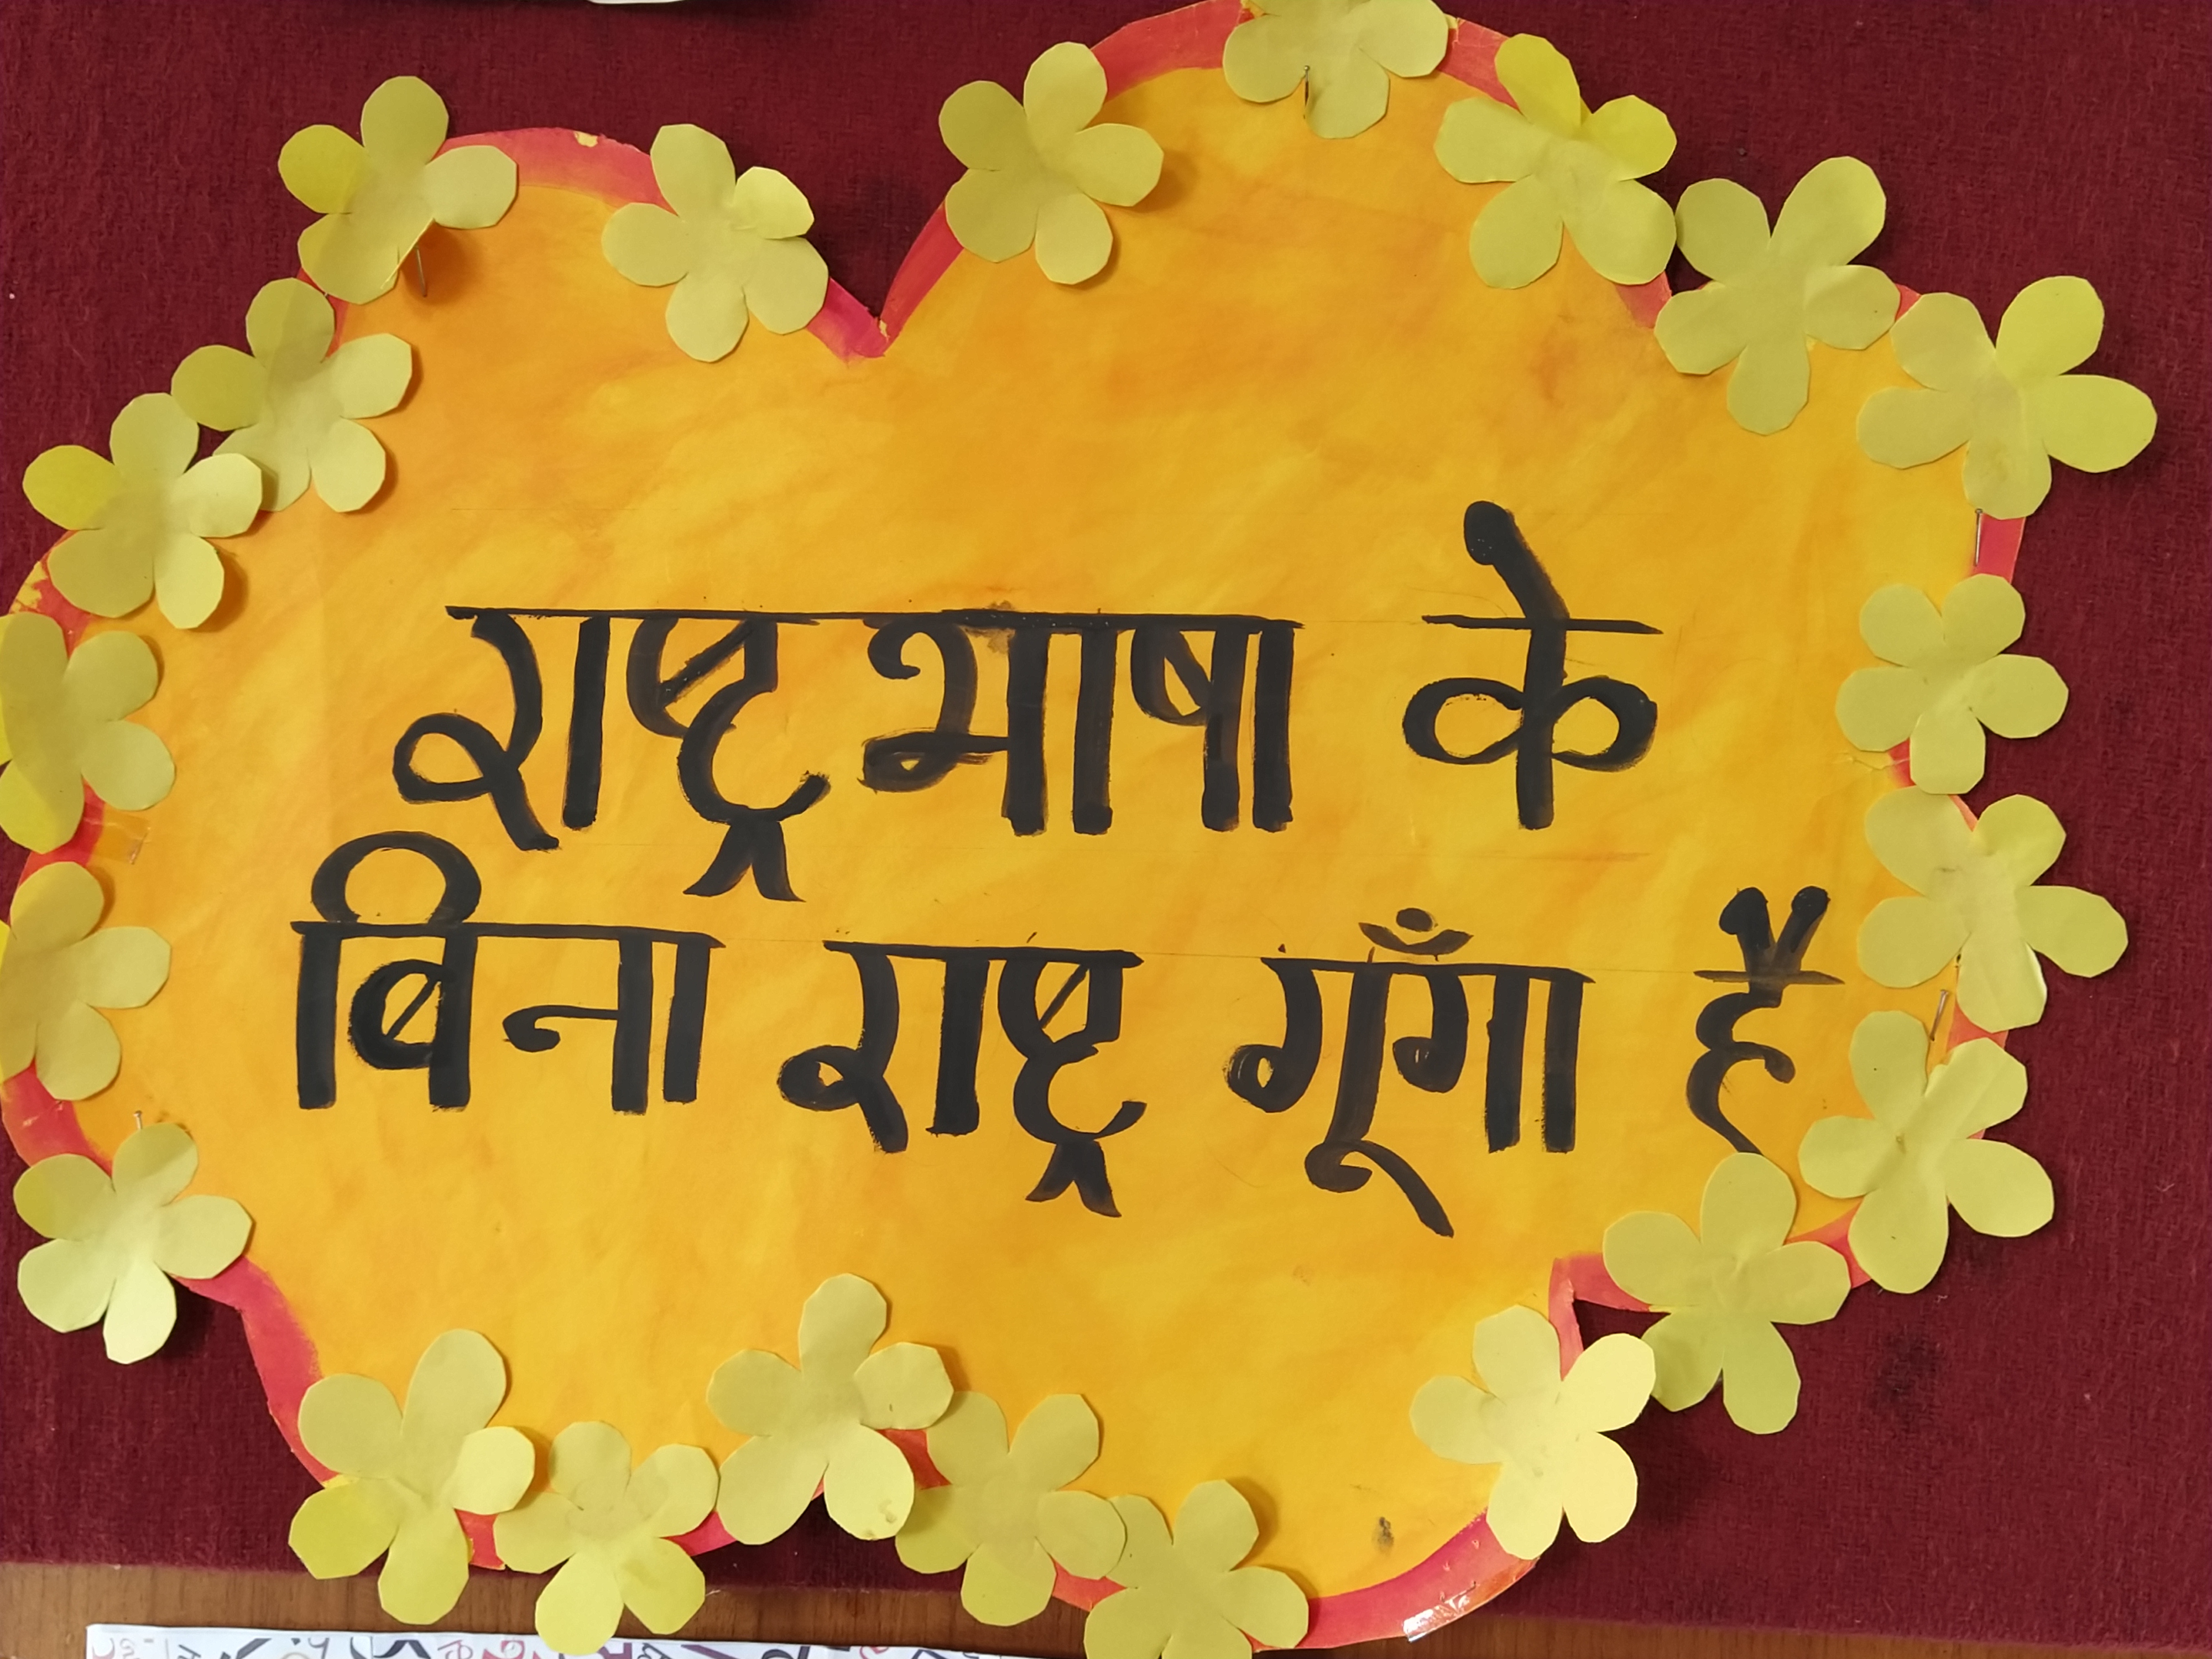 राष्ट्रभाषा के
बिना राष्ट्र गूँगा हैं